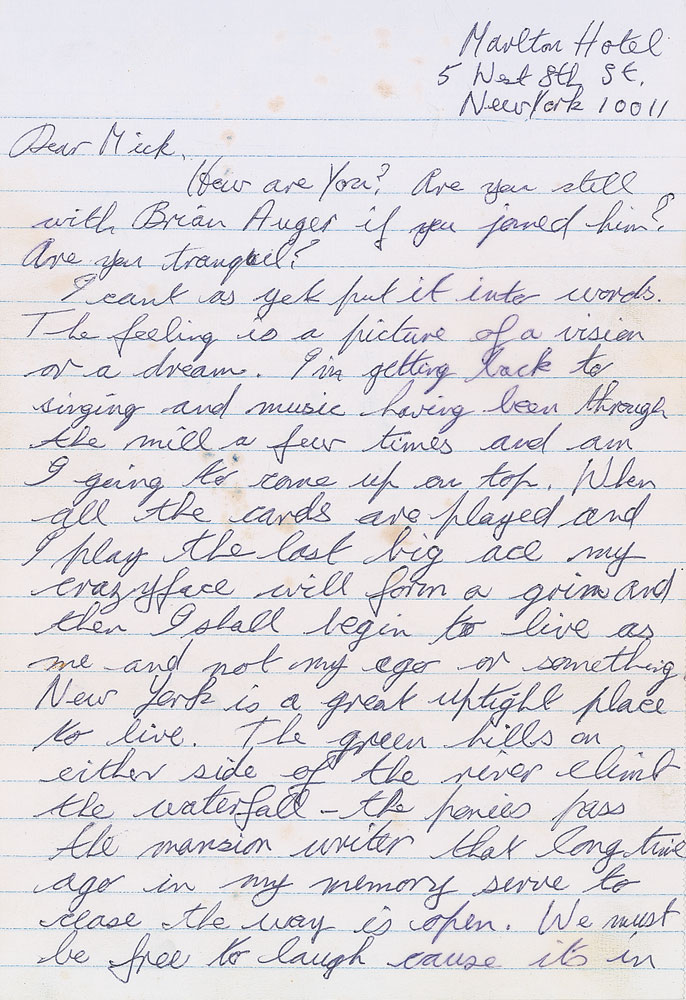 Marlton Hotel
5 West 8th St.
New York 10011
Dear Mick,
How are You? Are you still
with Brian Auger if you joined him?
Are you tranquil?
I cant as yet put it into words.
The feeling is a picture of a vision
or a dream. I'm getting back to
singing and music having been through
the mill a few times and am
I going to come up on top. When
all the cards are played and
I play the last big ace my
crazyface will form a grin and
then I shall begin to live as
me and not my ego or something.
New York is a great uptight place
to live. The green hills on
either side of the river climb
the waterfall - the ponies pass
the mansion writer that long time
ago in my memory serve to
cease the way is open. We must
be free to laugh cause its in